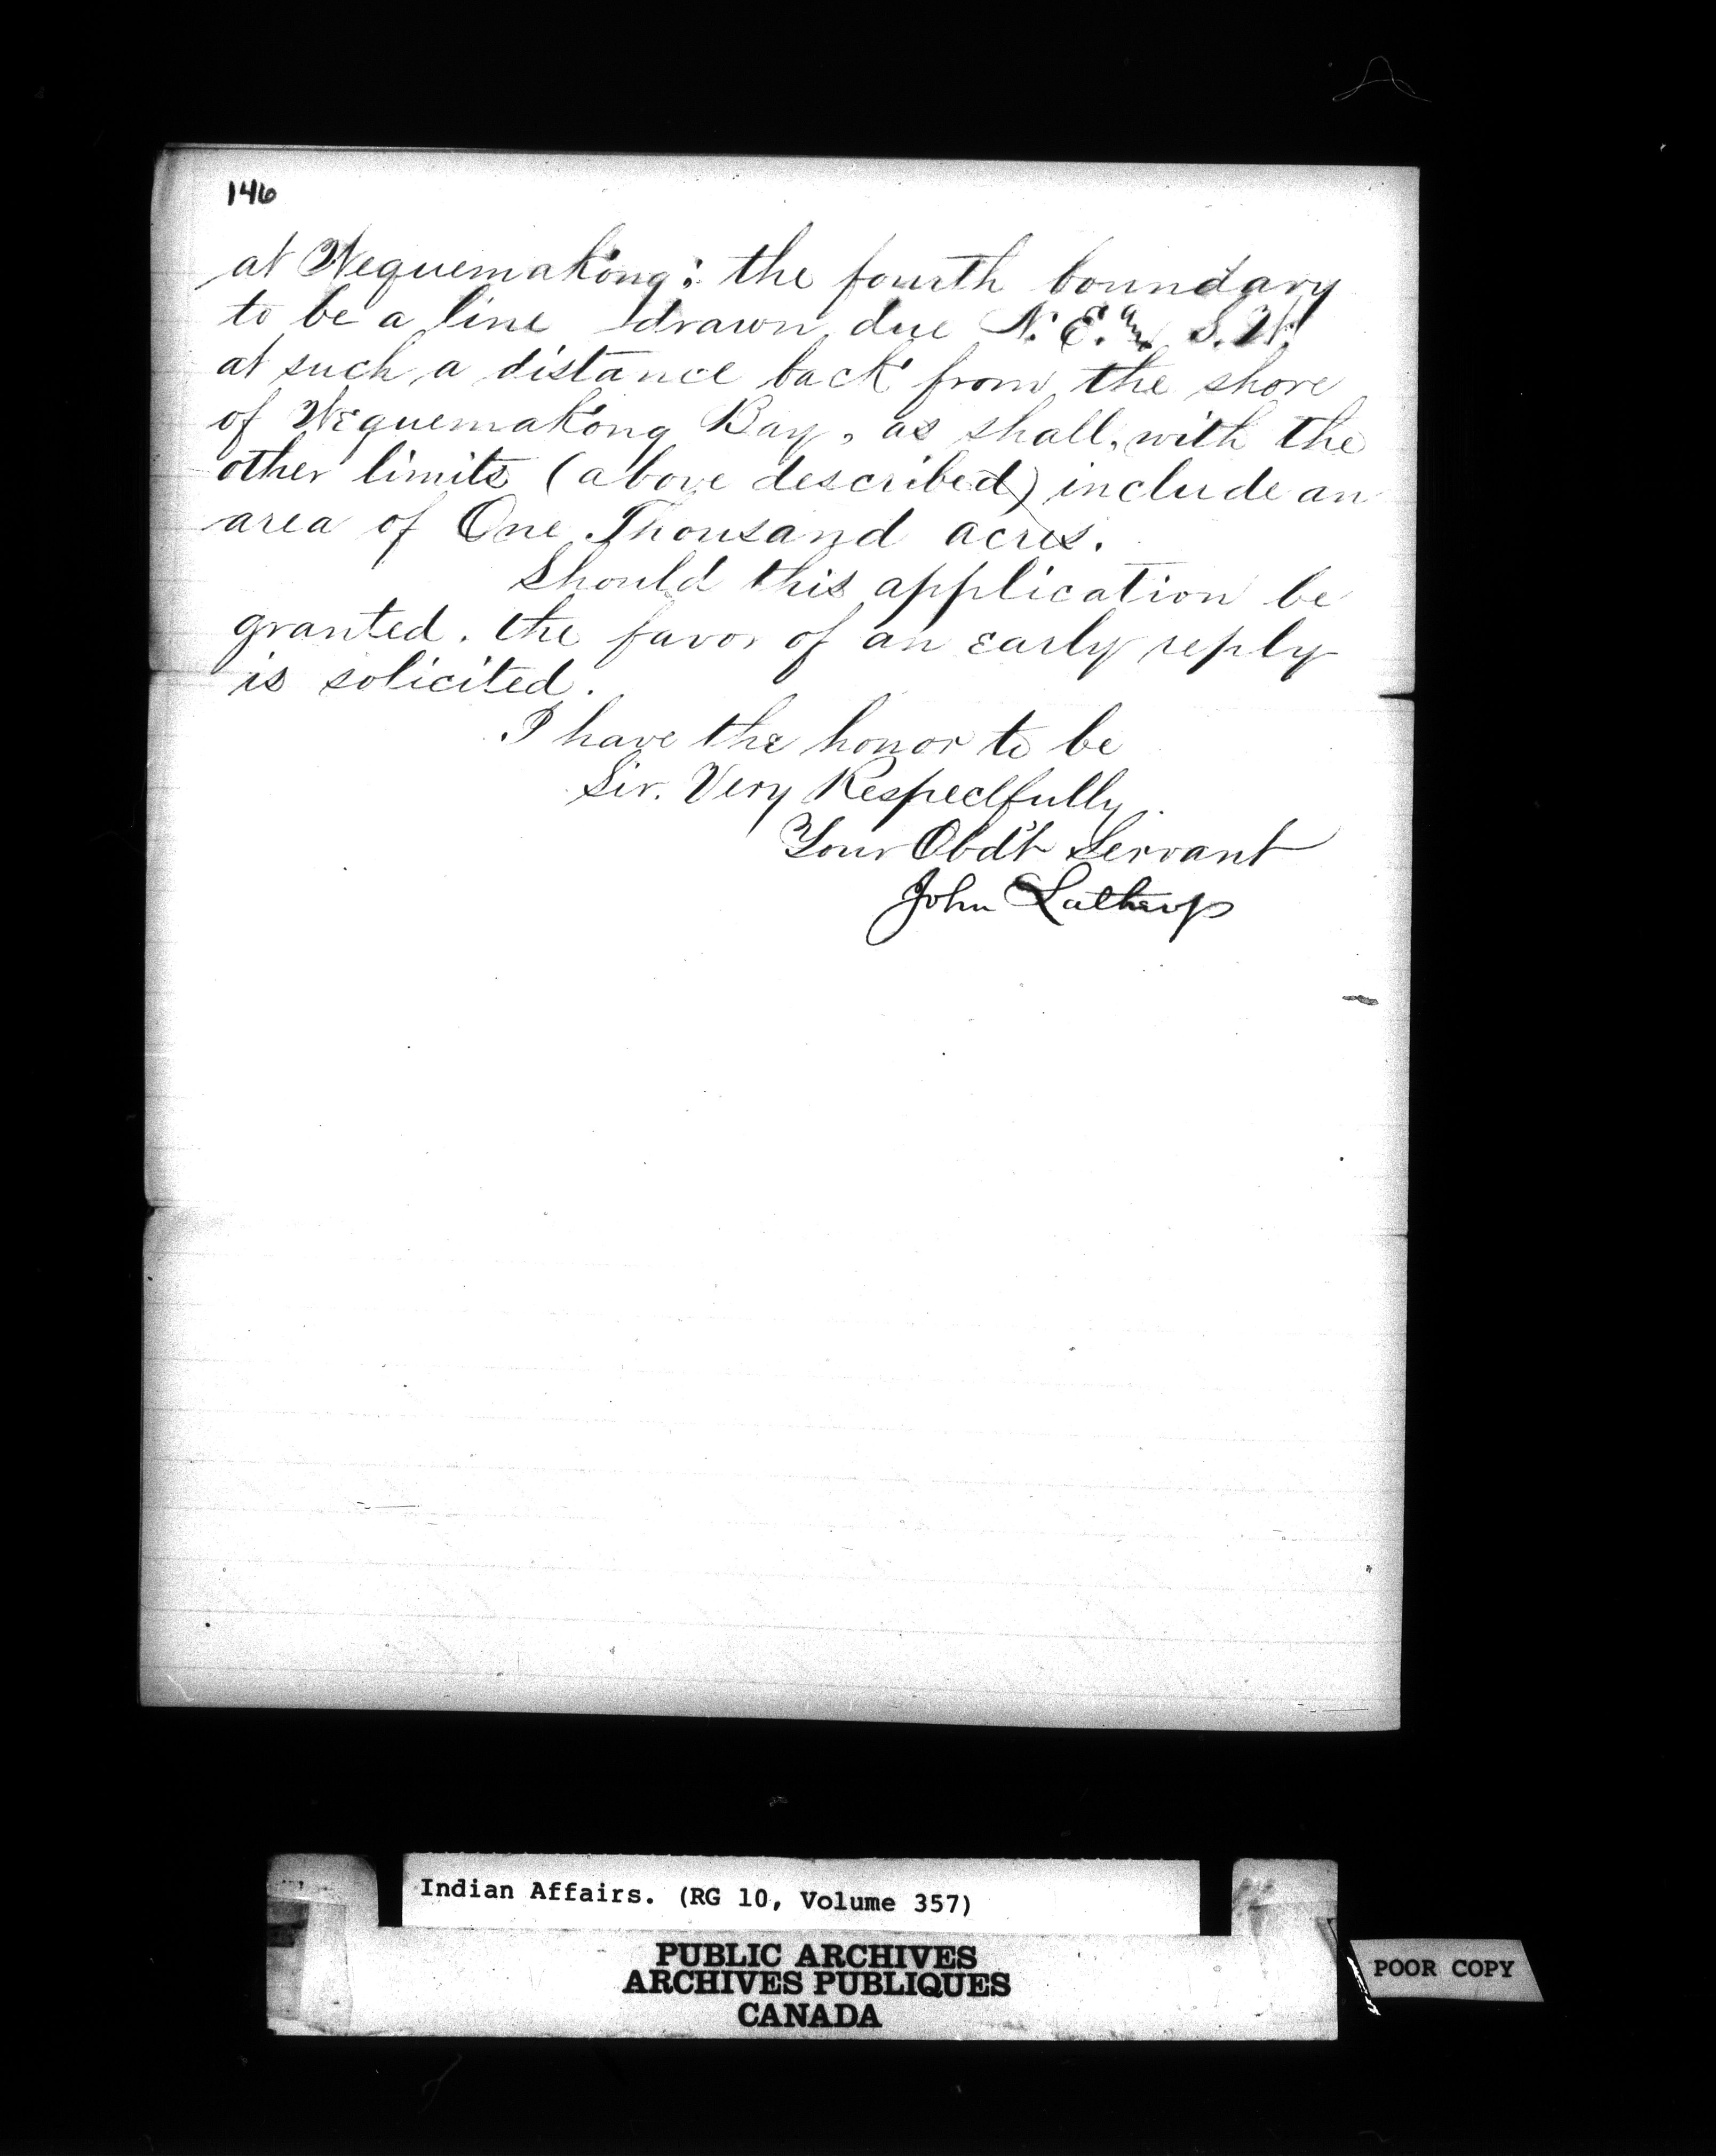 146
at Wequemakong; the fourth boundary
to be a line drawn due N.E. and S.W.
at such a distance back from the shore
of Wequemakong Bay, as shall, with the
other limits (above described) include an
area of One Thousand acres.
Should this application be
granted. the favor of an early reply
is solicited.
I have the honor to be
Sir. Very Respectfully.
Your Obd't Servant
John Lathrop
Indian Affairs. (RG 10, Volume 357)
PUBLIC ARCHIVES
ARCHIVES PUBLIQUES
CANADA
POOR COPY